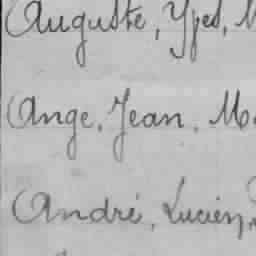 Auguste, Yves,
Ange, Jean, M
André, Lucien,